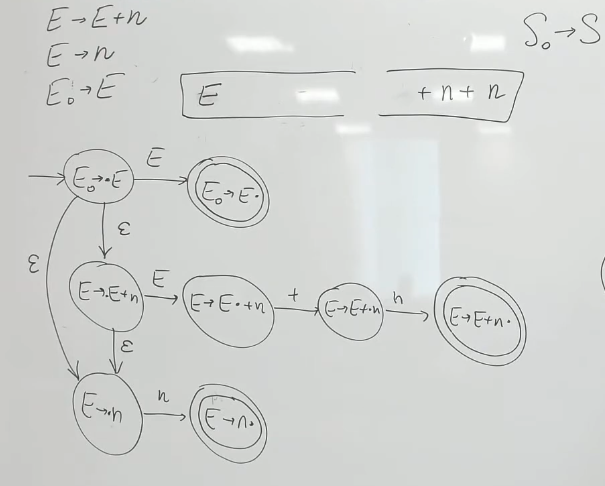 E→E+n
S₀→S
E→n
E₀→E
E
+n+n
E₀→·E
E
E₀→E·
ε
ε
E→·E+n
E
E→E·+n
+
E→E+·n
n
E→E+n·
ε
E→·n
n
E→n·